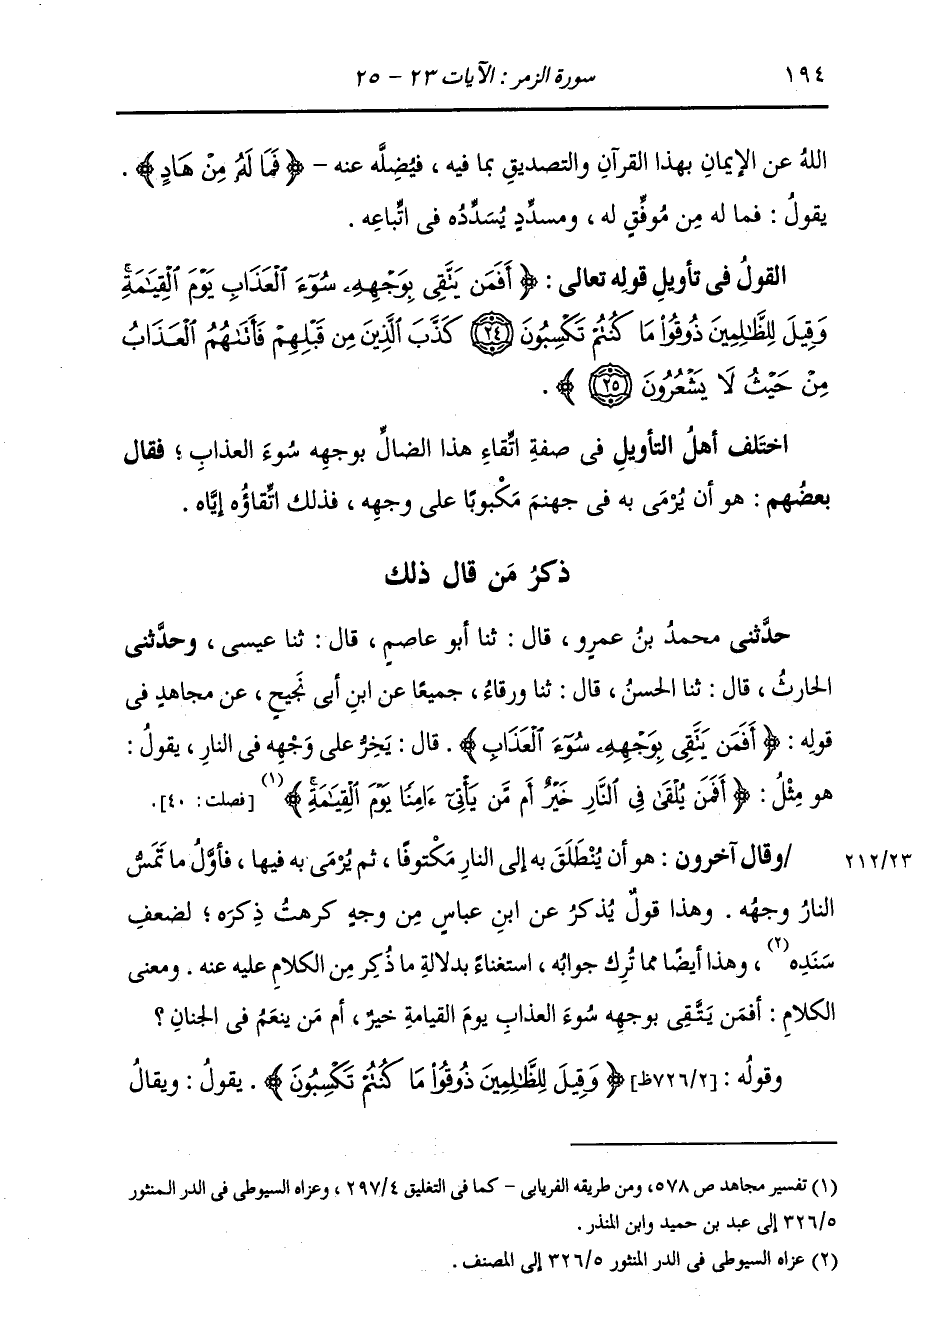 ١٩٤ سورة الزمر : الآيات ٢٣ - ٢٥
اللهُ عن الإيمانِ بهذا القرآنِ والتصديقِ بما فيه ، فيُضِلَّه عنه – ﴿ فَمَا لَهُۥ مِنْ هَادٍ ﴾ .
يقولُ : فما له مِن مُوفِّقٍ له ، ومسدِّدٍ يُسَدِّدُه فى اتِّباعِه .
القولُ فى تأويلِ قولِه تعالى : ﴿ أَفَمَن يَتَّقِى بِوَجْهِهِۦ سُوٓءَ ٱلْعَذَابِ يَوْمَ ٱلْقِيَٰمَةِۚ
وَقِيلَ لِلظَّٰلِمِينَ ذُوقُوا۟ مَا كُنتُمْ تَكْسِبُونَ ﴿٢٤﴾ كَذَّبَ ٱلَّذِينَ مِن قَبْلِهِمْ فَأَتَىٰهُمُ ٱلْعَذَابُ
مِنْ حَيْثُ لَا يَشْعُرُونَ ﴿٢٥﴾ ﴾ .
اختَلف أهلُ التأويلِ فى صفةِ اتِّقاءِ هذا الضالِّ بوجهِه سُوءَ العذابِ ؛ فقال
بعضُهم : هو أن يُرْمَى به فى جهنمَ مَكْبوبًا على وجهِه ، فذلك اتِّقاؤُه إيَّاه .
ذكرُ مَن قال ذلك
حدَّثنى محمدُ بنُ عمرٍو ، قال : ثنا أبو عاصمٍ ، قال : ثنا عيسى ، وحدَّثنى
الحارثُ ، قال : ثنا الحسنُ ، قال : ثنا ورقاءُ ، جميعًا عن ابنِ أبى نَجيحٍ ، عن مجاهدٍ فى
قولِه : ﴿ أَفَمَن يَتَّقِى بِوَجْهِهِۦ سُوٓءَ ٱلْعَذَابِ ﴾ . قال : يَخِرُّ على وَجْهِه فى النارِ ، يقولُ :
هو مِثْلُ : ﴿ أَفَمَن يُلْقَىٰ فِى ٱلنَّارِ خَيْرٌ أَم مَّن يَأْتِىٓ ءَامِنًا يَوْمَ ٱلْقِيَٰمَةِۚ ﴾ (١) [فصلت: ٤٠].
/وقال آخرون : هو أن يُنْطَلَقَ به إلى النارِ مَكْتوفًا ، ثم يُرْمَى به فيها ، فأوَّلُ ما تَمَسُّ ٢١٢/٢٣
النارُ وجهُه . وهذا قولٌ يُذكرُ عن ابنِ عباسٍ مِن وجهٍ كرهتُ ذِكرَه ؛ لضعفِ
سَنَدِه (٢) ، وهذا أيضًا مما تُرِك جوابُه ، استغناءً بدلالةِ ما ذُكِر مِن الكلامِ عليه عنه . ومعنى
الكلامِ : أفمَن يَتَّقِى بوجهِه سُوءَ العذابِ يومَ القيامةِ خيرٌ ، أم مَن ينعَمُ فى الجنانِ ؟
وقولُه : [٧٢٦/٢ظ] ﴿ وَقِيلَ لِلظَّٰلِمِينَ ذُوقُوا۟ مَا كُنتُمْ تَكْسِبُونَ ﴾ . يقولُ : ويقالُ
(١) تفسير مجاهد ص ٥٧٨، ومن طريقه الفريابى – كما فى التغليق ٢٩٧/٤ ، وعزاه السيوطى فى الدر المنثور
٣٢٦/٥ إلى عبد بن حميد وابن المنذر .
(٢) عزاه السيوطى فى الدر المنثور ٣٢٦/٥ إلى المصنف .